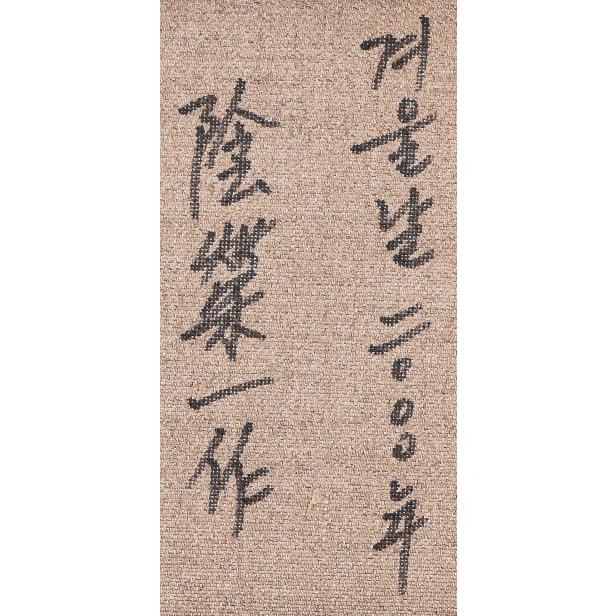 겨울날 二〇〇〇年
陰榮一作